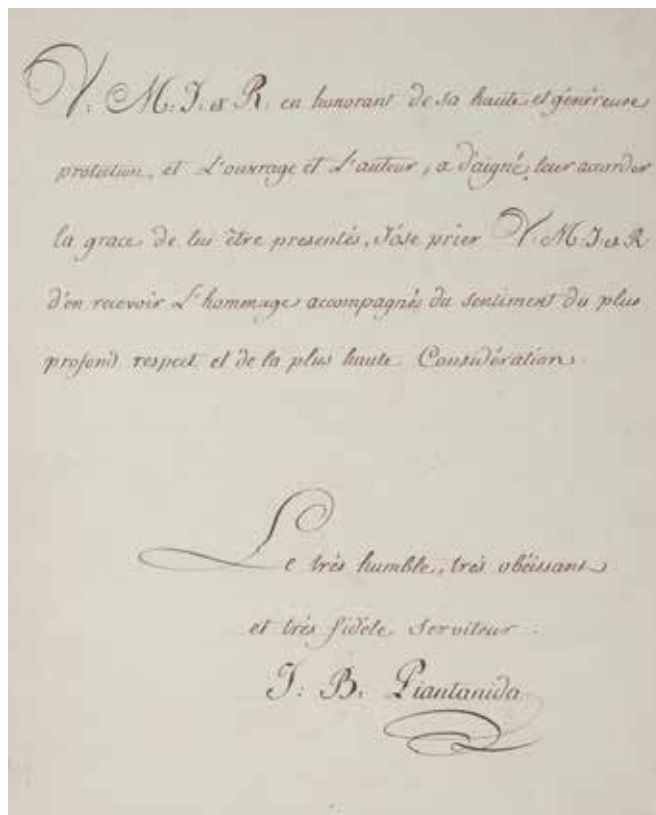 V. M. I. et R. en honorant de sa haute et généreuse
protection, et L'ouvrage et L'auteur, a daigné leur accorder
la grace de lui être presentés, J'ose prier V. M. I. et R.
d'en recevoir L'hommage accompagnés du sentiment du plus
profond respect et de la plus haute Considération.
Le très humble, très obéissant
et très fidèle Serviteur.
J: B. Piantanida